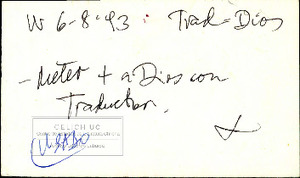 W 6-8-93 : Trad = Dios
- Meter + a Dios con
Traduction.
CELICH UC